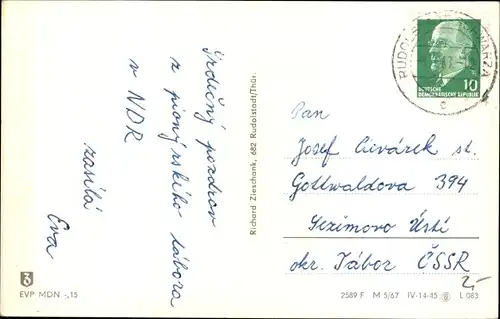 Srdečný pozdrav
z pionýrského tábora
v NDR
zasílá
Eva
Richard Zieschank, 682 Rudolstadt/Thür.
EVP MDN -,15
RUDOLSTADT-SCHWARZA
e
DEUTSCHE
DEMOKRATISCHE REPUBLIK
10
Pan
Josef Civárek st.
Gottwaldova 394
Sezimovo Ústí
okr. Tábor ČSSR
2589 F M 5/67 IV-14-45 L 083